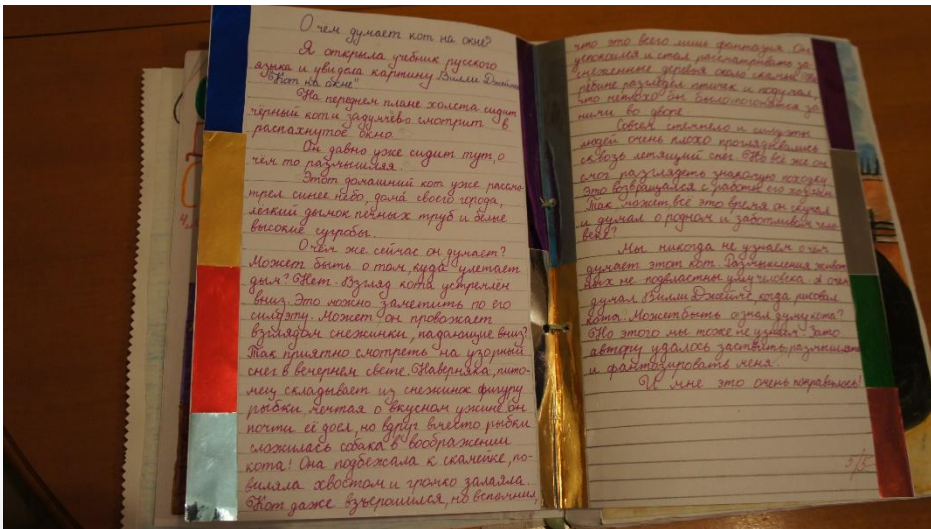 О чём думает кот на окне?
Я открыла учебник русского
языка и увидела картину Вилли Джеймса
"Кот на окне"
На переднем плане холста сидит
чёрный кот и задумчево смотрит в
распахнутое окно.
Он давно уже сидит тут, о
чем то размышляя.
Этот домашний кот уже рассмо-
трел синее небо, дома своего города,
лёгкий дымок печных труб и белые
высокие сугробы.
О чём же сейчас он думает?
Может быть о том, куда улетает
дым? Нет. Взгляд кота устремлен
вниз. Это можно заметить по его
силуэту. Может он провожает
взглядом снежинки, падающие вниз?
Так приятно смотреть на узорный
снег в вечернем свете. Наверняка, пито-
мец складывает из снежинок фигуру
рыбки, мечтая о вкусном ужине он
почти её доел, но вдруг вместо рыбки
сложилась собака в воображении
кота! Она подбежала к скамейке, по-
виляла хвостом и громко залаяла.
Кот даже взъерошился, но вспомнил,
что это всего лишь фантазия. Он
успокоился и стал рассматривать за-
снеженные деревья около скамьи. На
рябине разглядел птичек и подумал,
что неплохо он было погонятся за
ними во дворе.
Совсем стемнело и силуэты
людей очень плохо проглядывались
сквозь летящий снег. Но всё же он
смог разглядеть знакомую походку.
Это возвращался с работы его хозяин.
Так может всё это время он скучал
и думал о родном и заботливом чело-
веке?
Мы никогда не узнаем о чём
думает этот кот. Размышления живот-
ных не подвластны уму человека. А о чем
думал Вилли Джеймс, когда рисовал
кота? Может быть он знал думу кота?
Но этого мы тоже не узнаем. Зато
автору удалось заставить размышлять
и фантазировать меня.
И мне это очень понравилось!
5/5